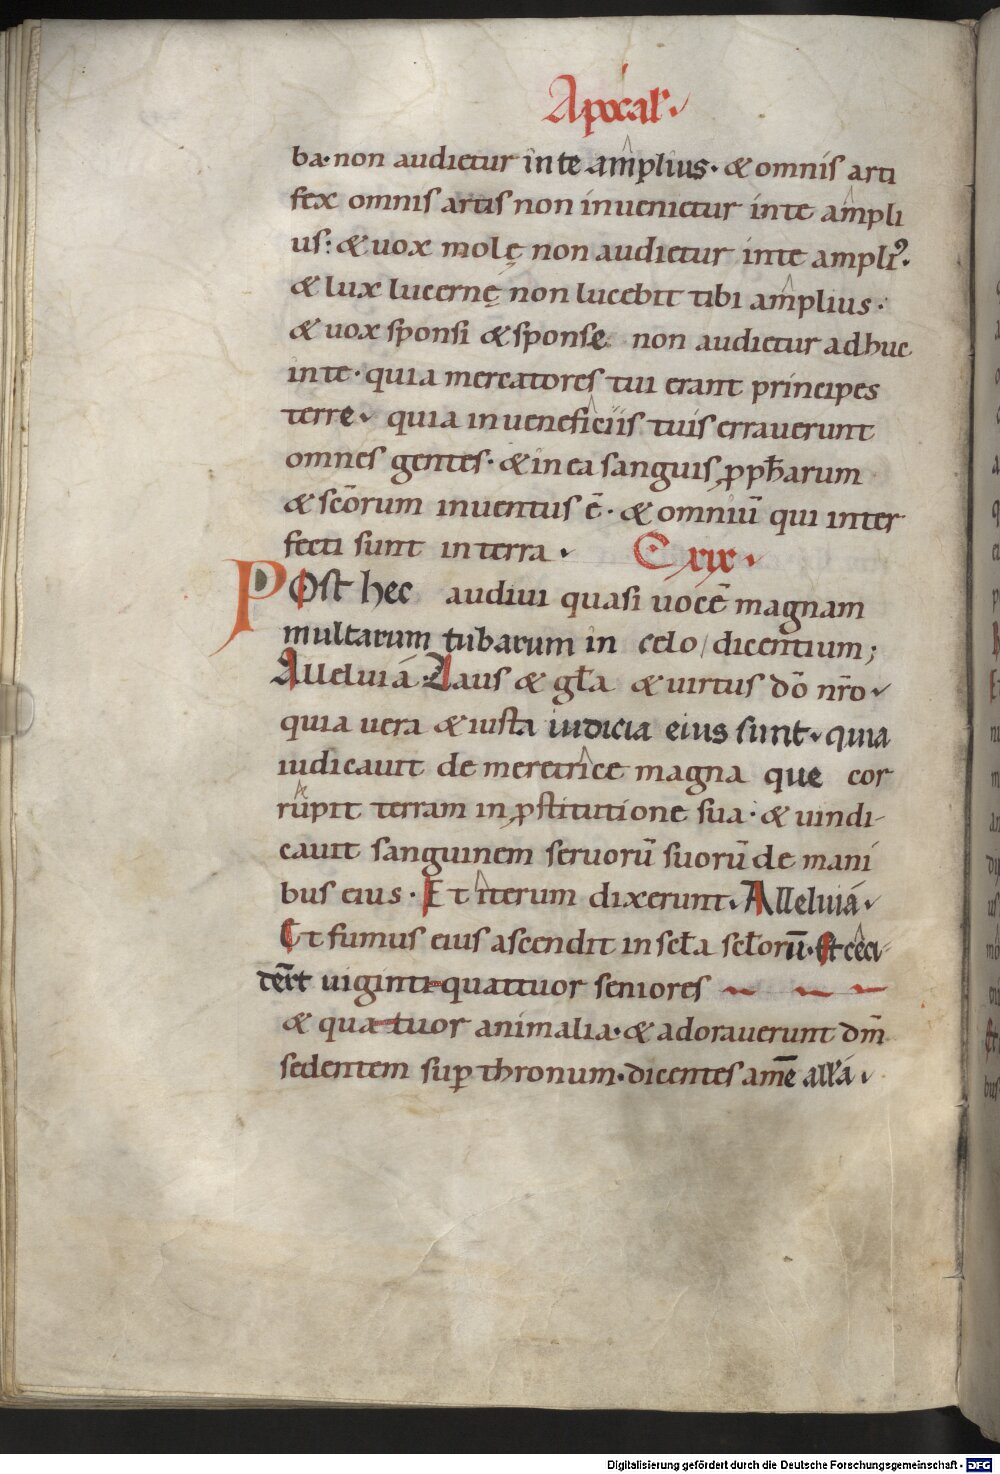 Apocal'.
ba. non audietur in te amplius. & omnis arti
fex omnis artis non inuenietur in te ampli
us: & uox molę non audietur in te ampliꝰ.
& lux lucernę non lucebit tibi amplius.
& uox sponsi & sponse non audietur adhuc
in te. quia mercatores tui erant principes
terre. quia in ueneficiis tuis errauerunt
omnes gentes. & in ea sanguis ꝓph̄arum
& sc̄orum inuentus ē. & omniū qui inter
fecti sunt in terra. C xix.
Post hec audiui quasi uocē magnam
multarum tubarum in celo / dicentium;
Alleluiá. Laus & gl̄a & uirtus dō nr̄o
quia uera & iusta iudicia eius sunt. quia
iudicauit de meretrice magna que cor
rupit terram in ꝓstitutione sua. & uindi-
cauit sanguinem seruorū suorū de mani
bus eius. Et iterum dixerunt. Alleluiá.
Et fumus eius ascendit in scl̄a scl̄orū. Et ceci-
der̄t uiginti-quattuor seniores
& quatuor animalia. & adorauerunt dm̄
sedentem suꝑ thronum. dicentes amē all'á.
Digitalisierung gefördert durch die Deutsche Forschungsgemeinschaft - DFG